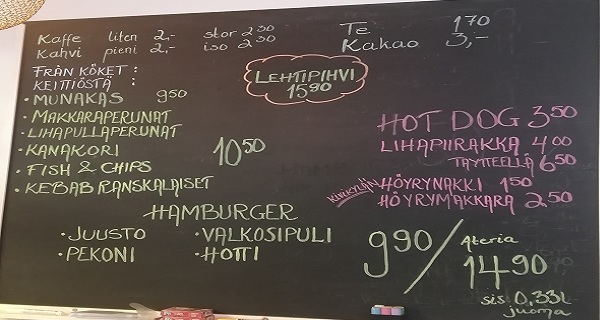 Kaffe liten 2,- stor 2 50
Kahvi pieni 2,- iso 2 50
Te 1 70
Kakao 3,-
FRÅN KÖKET :
KEITTIÖSTÄ :
LEHTIPIHVI
15 90
• MUNAKAS 9 50
• MAKKARAPERUNAT
• LIHAPULLAPERUNAT
• KANAKORI 10 50
• FISH & CHIPS
• KEBAB RANSKALAISET
HOT DOG 3 50
LIHAPIIRAKKA 4 00
TÄYTTEELLÄ 6 50
HÖYRYNAKKI 1 50
HÖYRYMAKKARA 2 50
HAMBURGER
• JUUSTO • VALKOSIPULI
• PEKONI • HOTTI
9 90 / Ateria
14 90
sis. 0,33 l
juoma